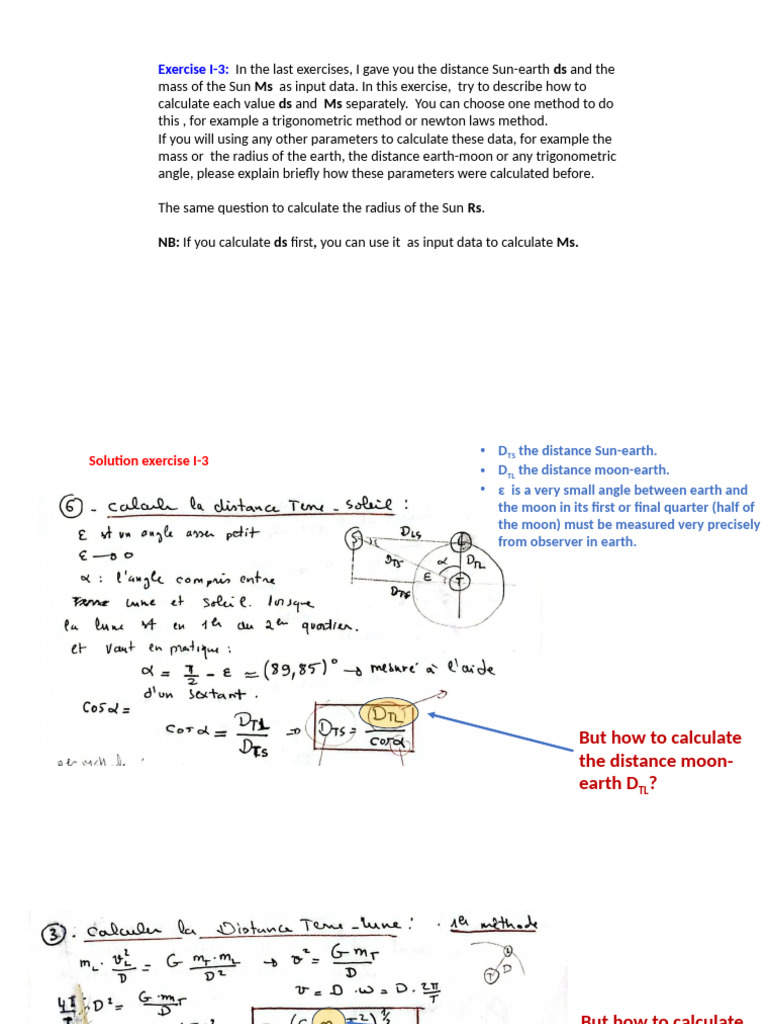 Exercise I-3: In the last exercises, I gave you the distance Sun-earth ds and the
mass of the Sun Ms as input data. In this exercise, try to describe how to
calculate each value ds and Ms separately. You can choose one method to do
this , for example a trigonometric method or newton laws method.
If you will using any other parameters to calculate these data, for example the
mass or the radius of the earth, the distance earth-moon or any trigonometric
angle, please explain briefly how these parameters were calculated before.
The same question to calculate the radius of the Sun Rs.
NB: If you calculate ds first, you can use it as input data to calculate Ms.
Solution exercise I-3
• D_TS the distance Sun-earth.
• D_TL the distance moon-earth.
• ε is a very small angle between earth and
the moon in its first or final quarter (half of
the moon) must be measured very precisely
from observer in earth.
6 - calculer la distance Terre-Soleil :
ε est un angle assez petit
ε → 0
α : l'angle compris entre
lune et soleil. lorsque
la lune est en 1er ou 2em quartier.
et vaut en pratique :
α = π/2 - ε ≃ (89,85)° → mesuré à l'aide
d'un sextant.
Cosα =
cosα = D_TL/D_TS ⇒ D_TS = D_TL/cosα
S D_LS L
D_TS α D_TL
ε T
D_TS
But how to calculate
the distance moon-
earth D_TL?
3. calculer la Distance Terre-lune : . 1er méthode
m_L · v_L²/D = G m_T·m_L/D² → v² = G m_T/D
v = D·ω = D·2π/T
D² = G·m_T/D
L
T D
But how to calculate